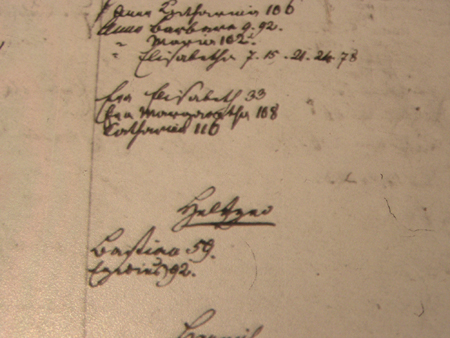 Anna Catharina 106
Anna Barbara 9. 92.
" Maria 102.
" Elisabetha 7. 15. 21. 24. 78
Eva Elisabeth 33
Eva Margaretha 108
Catharina 116
Bastian 59.
92.